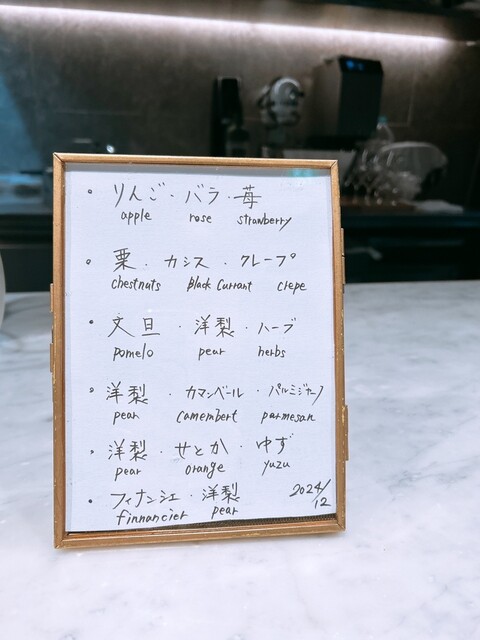 • りんご・バラ・苺
apple rose strawberry
• 栗・カシス・クレープ
chestnuts Black Currant crepe
• 文旦・洋梨・ハーブ
pomelo pear herbs
• 洋梨・カマンベール・パルミジャーノ
pear camembert parmesan
• 洋梨・せとか・ゆず
pear orange yuzu
• フィナンシェ・洋梨
finnancier pear
2024/12